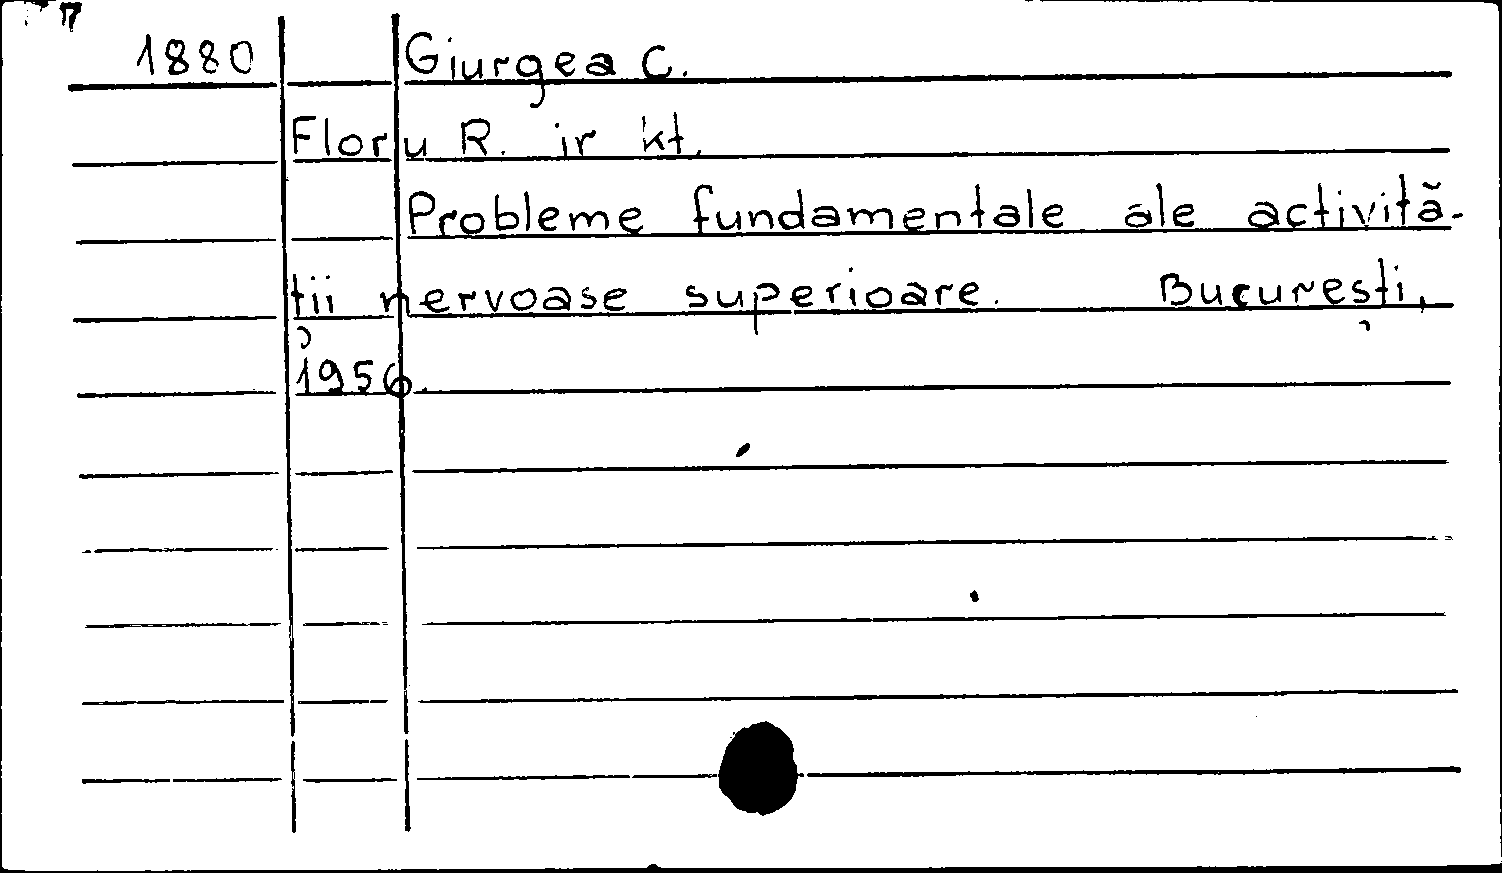 1880 Giurgea C.
Floru R. ir kt.
Probleme fundamentale ale activită-
ții nervoase superioare. București,
1956.